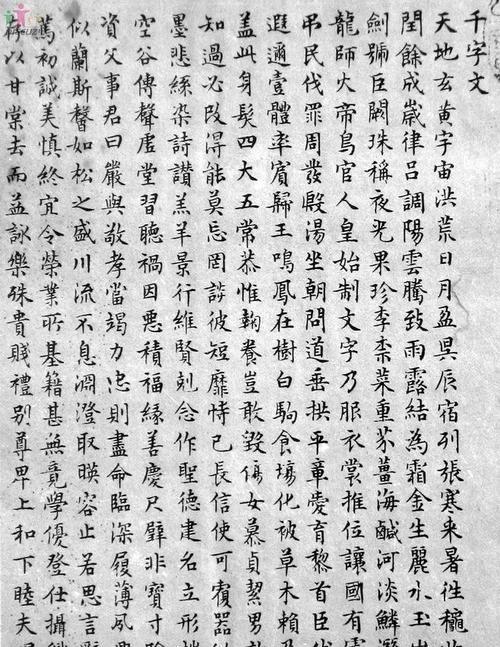 千字文
天地玄黃宇宙洪荒日月盈昃辰宿列張寒来暑徃穐
閏餘成歲律呂調陽雲騰致雨露結為霜金生麗水玉出
劍號巨闕珠稱夜光果珍李柰菜重芥薑海鹹河淡鱗
龍師火帝鳥官人皇始制文字乃服衣裳推位讓國有
弔民伐罪周發殷湯坐朝問道垂拱平章愛育黎首臣
遐邇壹體率賓歸王鳴鳳在樹白駒食場化被草木賴
蓋此身髮四大五常恭惟鞠養豈敢毀傷女慕貞絜男
知過必改得能莫忘罔談彼短靡恃己長信使可覆器
墨悲絲染詩讚羔羊景行維賢剋念作聖德建名立形
空谷傳聲虛堂習聽禍因惡積福緣善慶尺璧非寶寸
資父事君曰嚴與敬孝當竭力忠則盡命臨深履薄夙
似蘭斯馨如松之盛川流不息淵澄取暎容止若思言
篤初誠美慎終宜令榮業所基籍甚無竟學優登仕攝
存以甘棠去而益詠樂殊貴賤禮別尊卑上和下睦夫